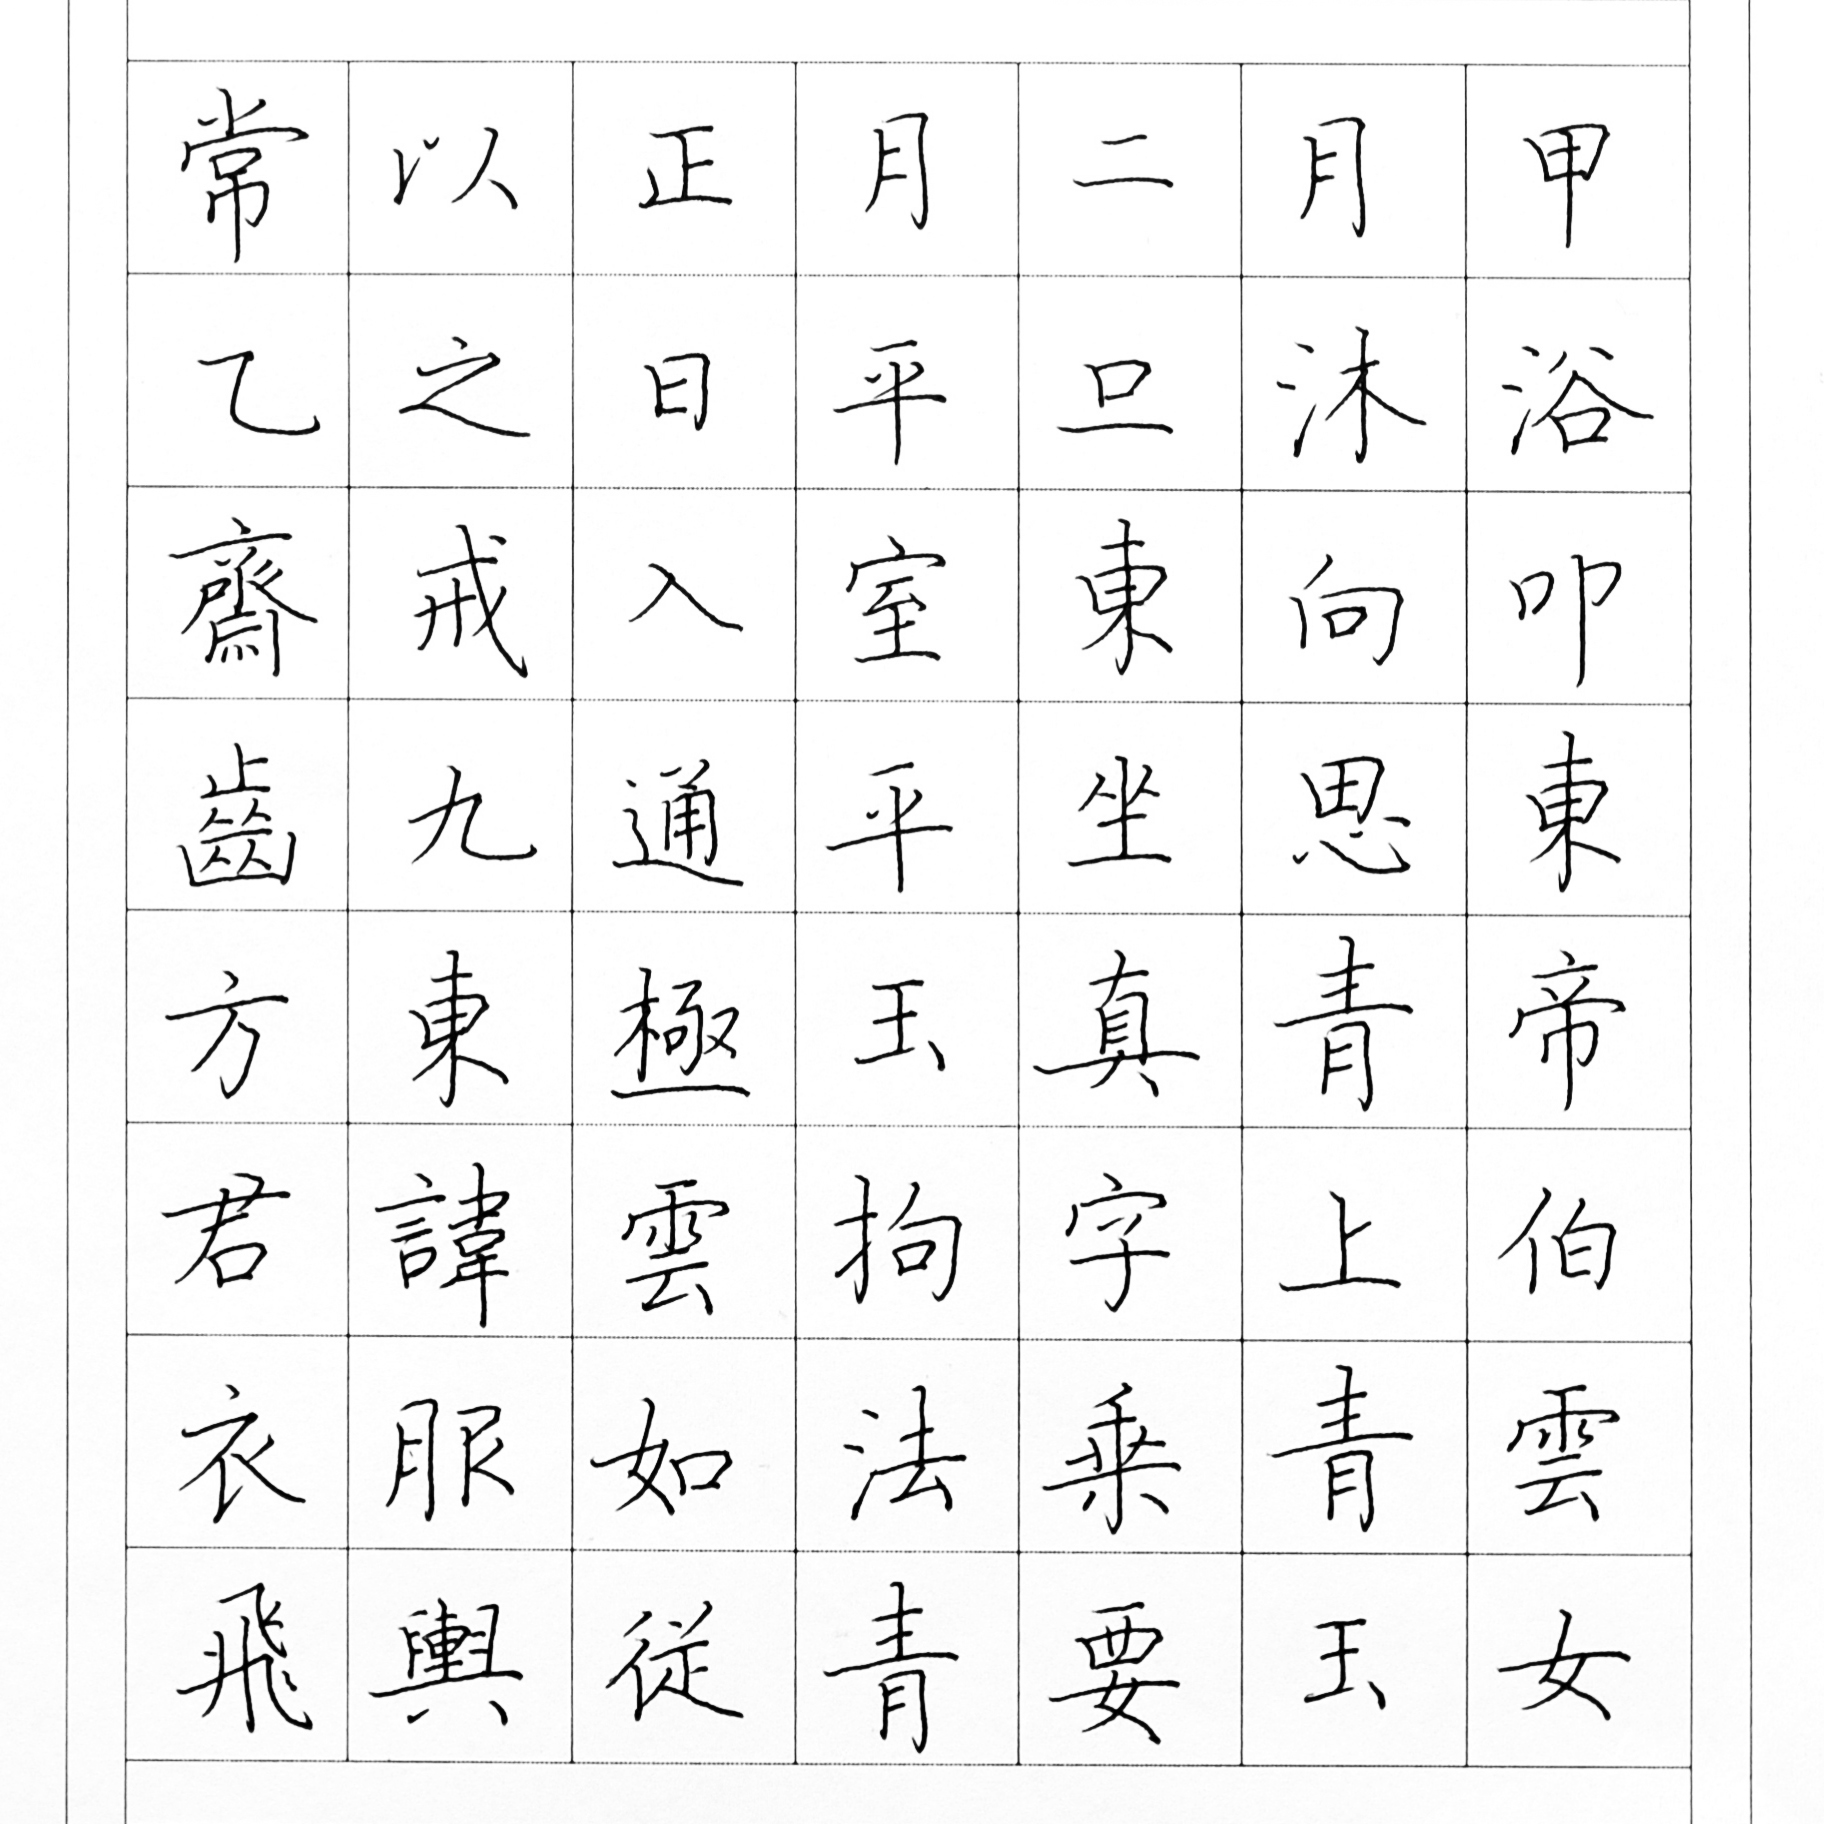 常以正月二月甲
乙之日平旦沐浴
齋戒入室東向叩
齒九通平坐思東
方東極玉真青帝
君諱雲拘字上伯
衣服如法乘青雲
飛輿從青要玉女